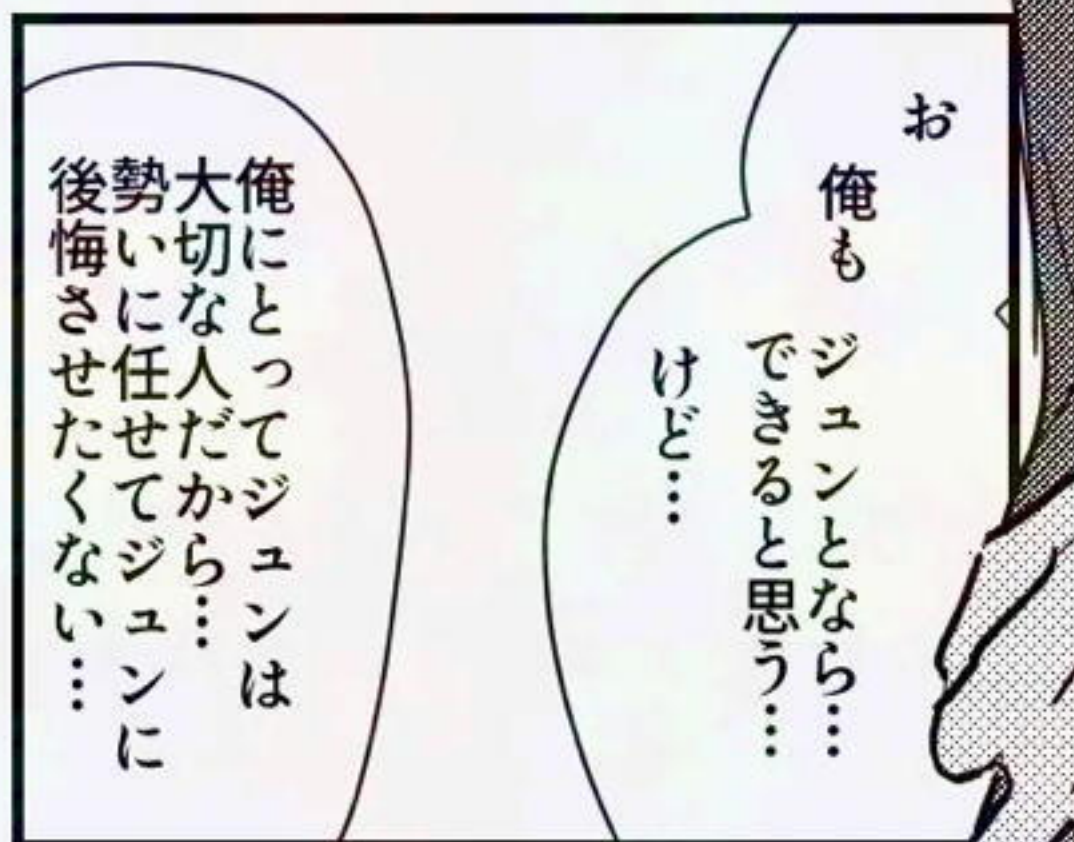 お
俺も
ジュンとなら…
できると思う…
けど…
俺にとってジュンは
大切な人だから…
勢いに任せてジュンに
後悔させたくない…